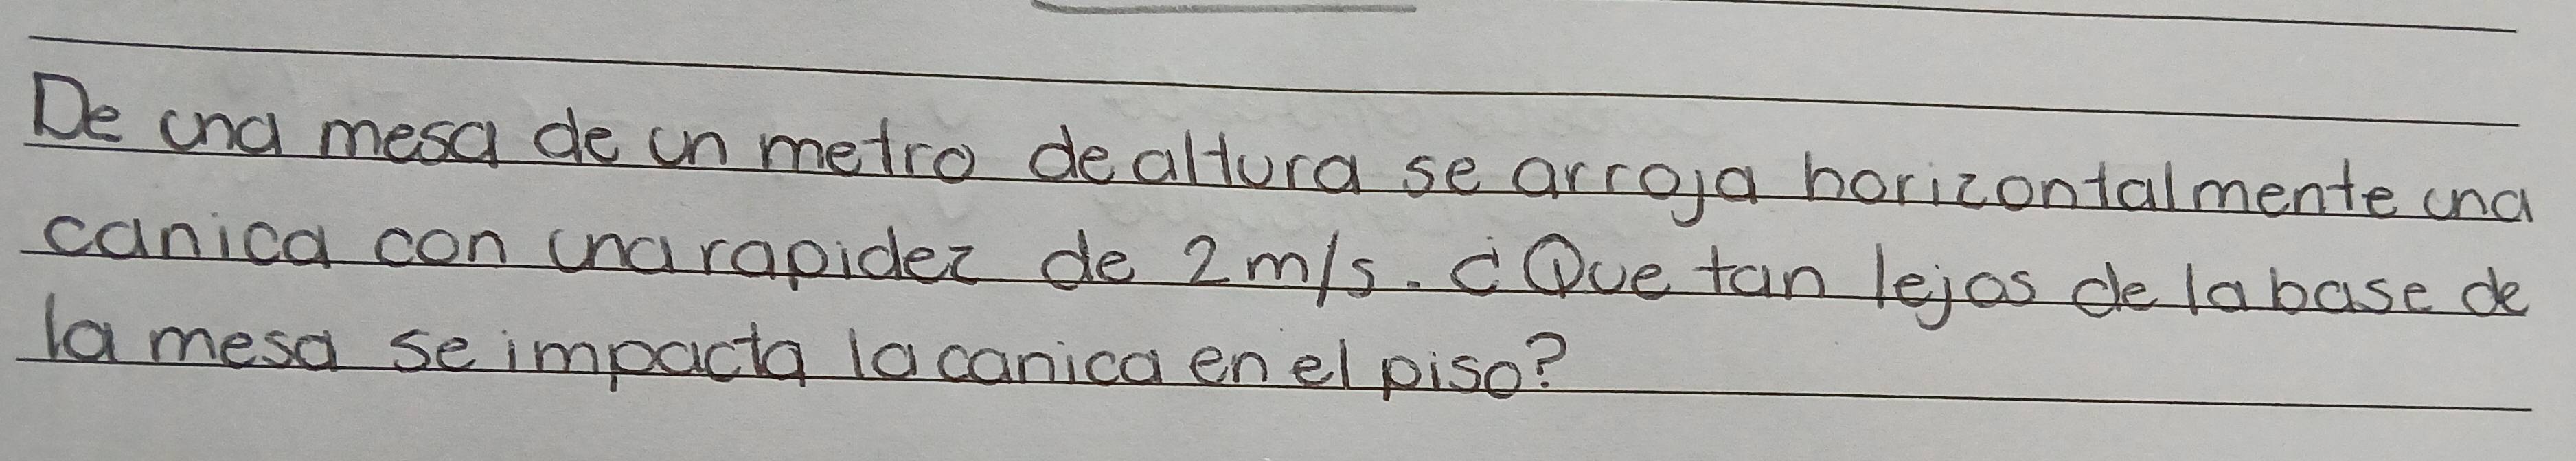 De una mesa de un metro de altura se arroja horizontalmente una
canica con una rapidez de 2 m/s. ¿Que tan lejos de la base de
la mesa se impacta la canica en el piso?